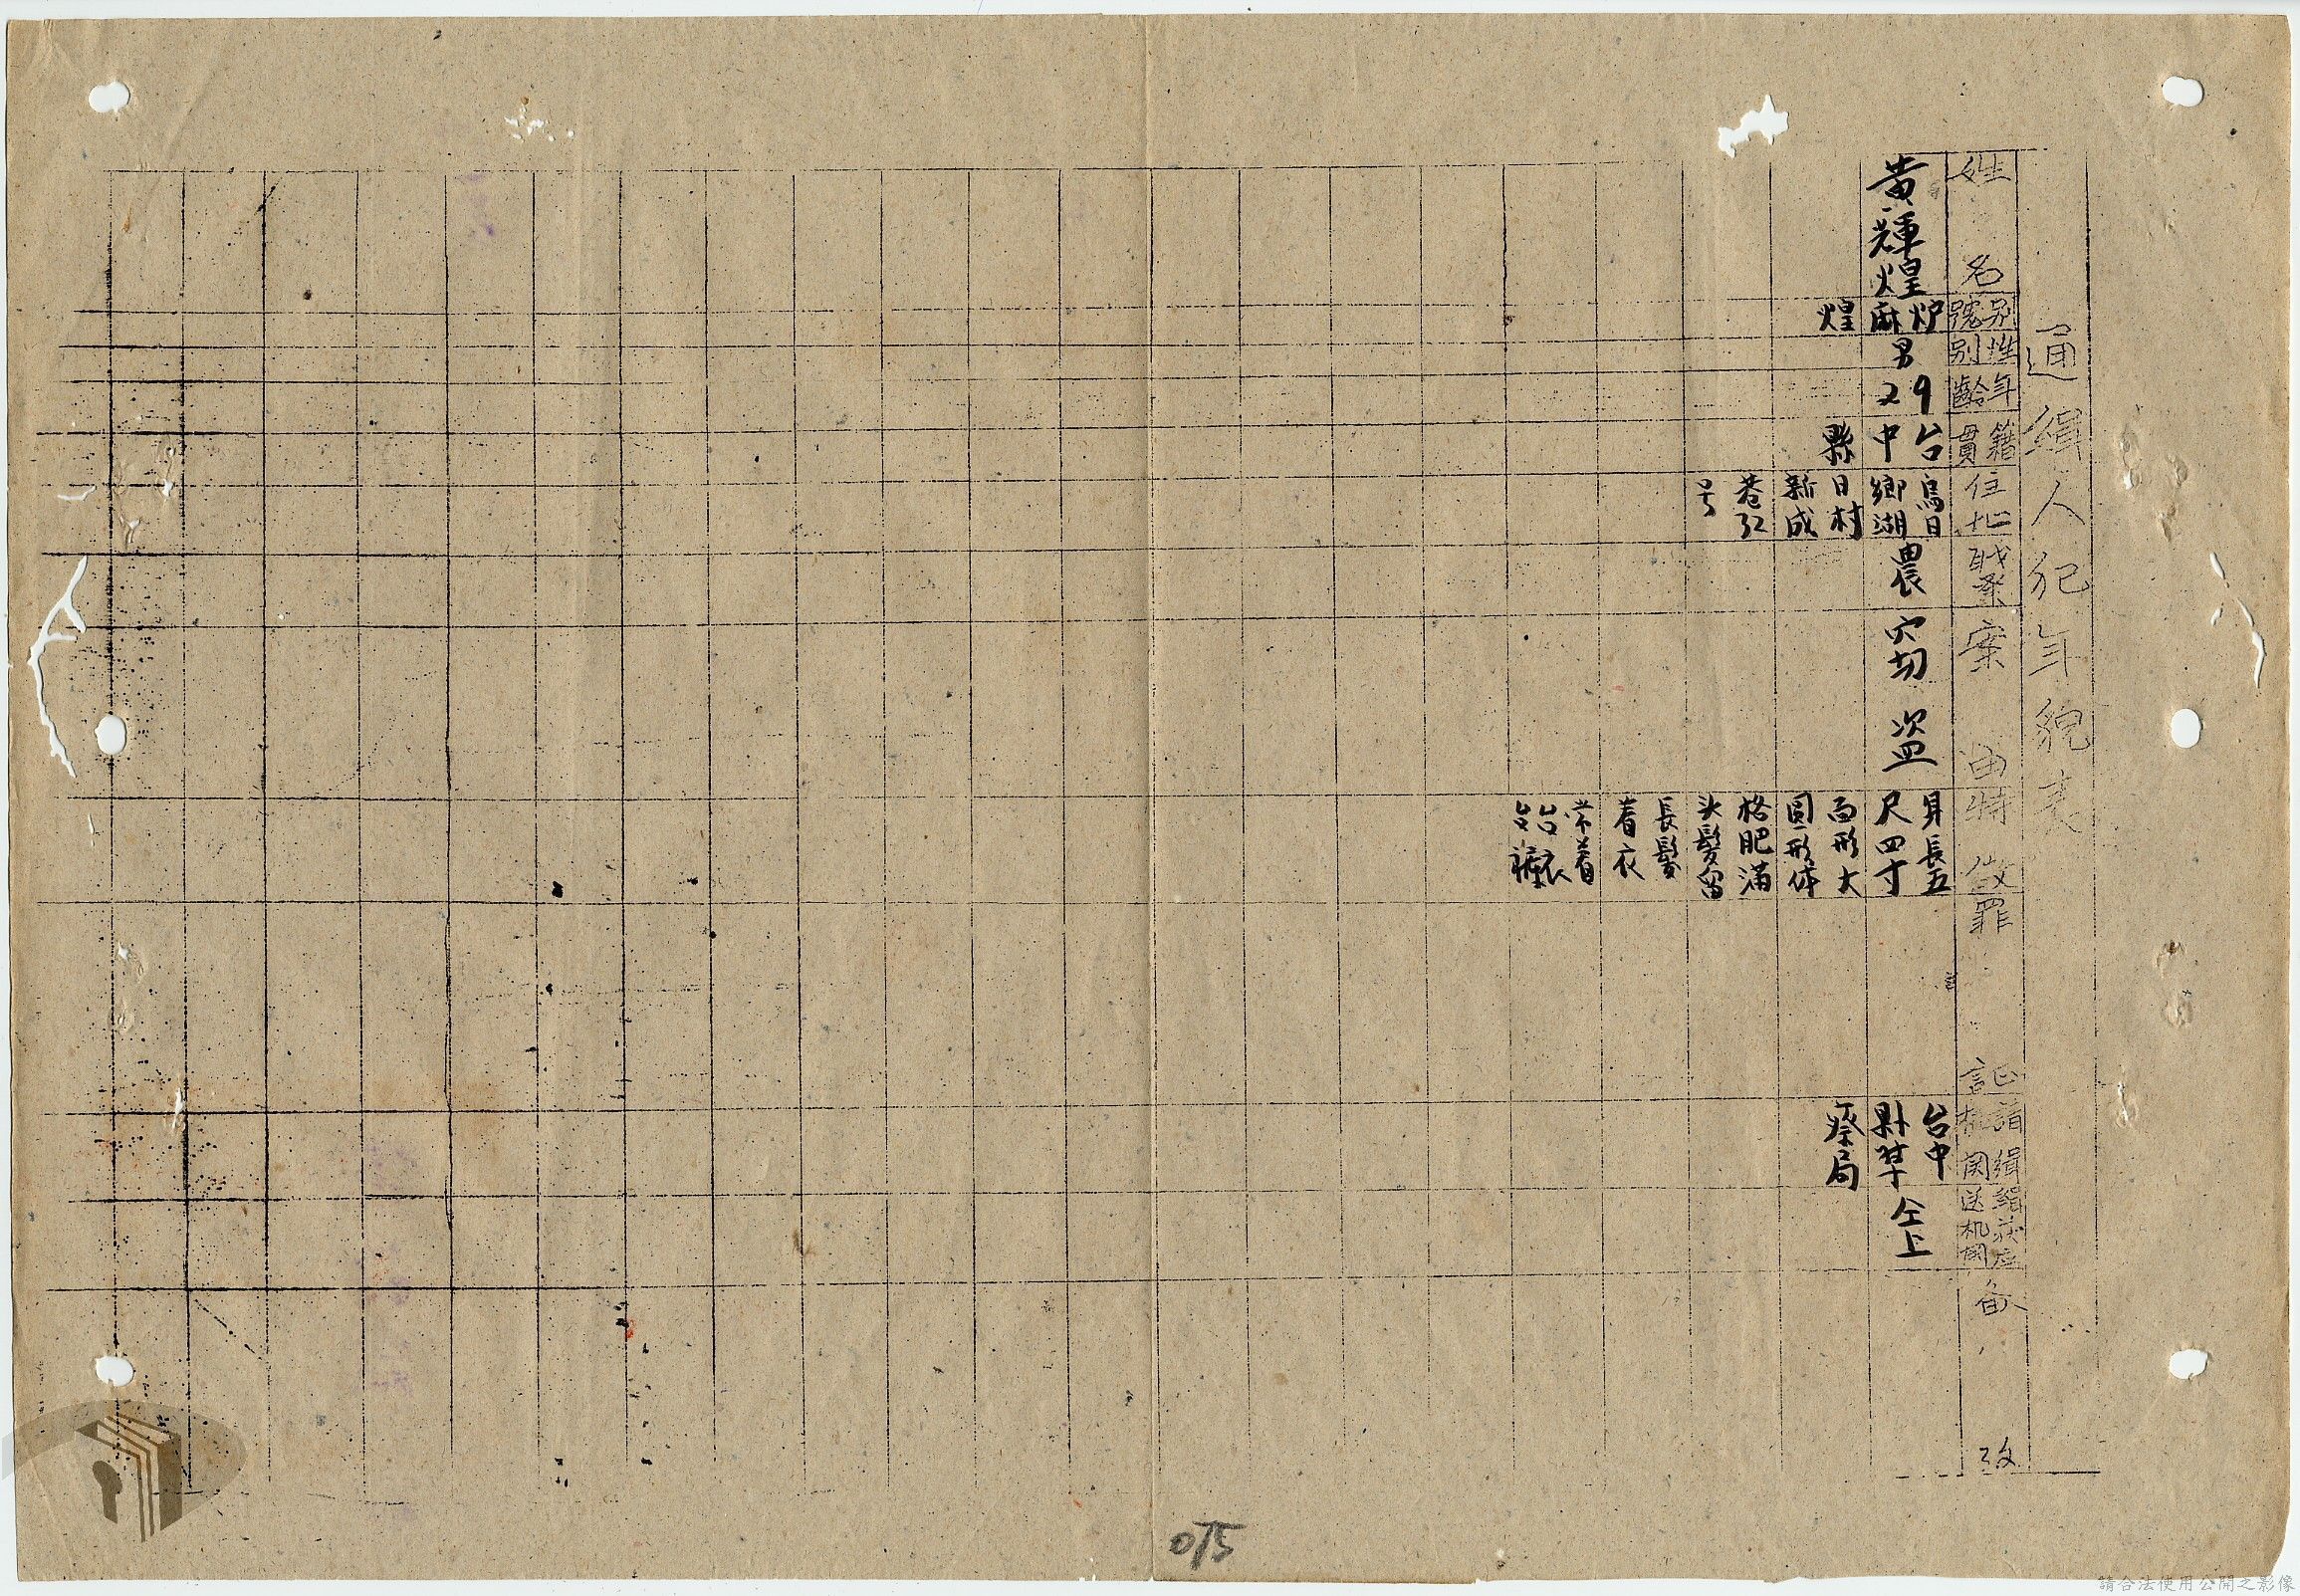 通緝人犯年貌表
姓名
別號
性別
年齡
籍貫
住址
職業
案由
特徵
罪証
請緝机関
緝获應送机関
备攷
黄輝煌
炉
麻
煌
男
29
台
中
縣
烏日
鄉湖
日村
新成
巷32
号
農
窃盗
身長五
尺四寸
面形大
圓形体
格肥満
头髮留
長髮
着衣
常着
台衣
台褲
台中
縣警
察局
仝上
015
請合法使用公開之影像